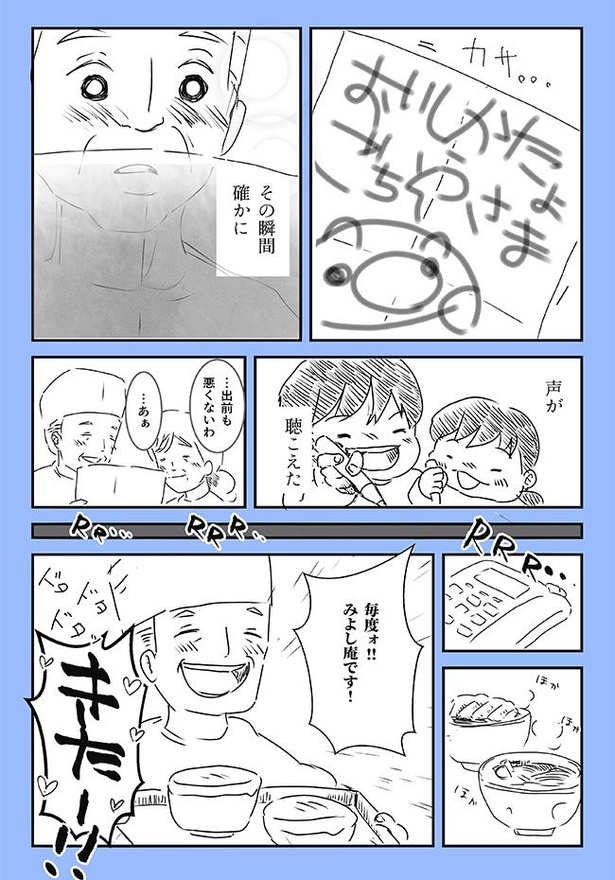 カサ...
おいしかたよ
ごちそうさま
その瞬間
確かに
声が
聴こえた
…出前も
悪くないわ
…あぁ
RRR..
RRR..
RR...
ほか
ほか
ほか
毎度ォ!!
みよし庵です!
ドタドタ
ドタドタ
きたーッ!!